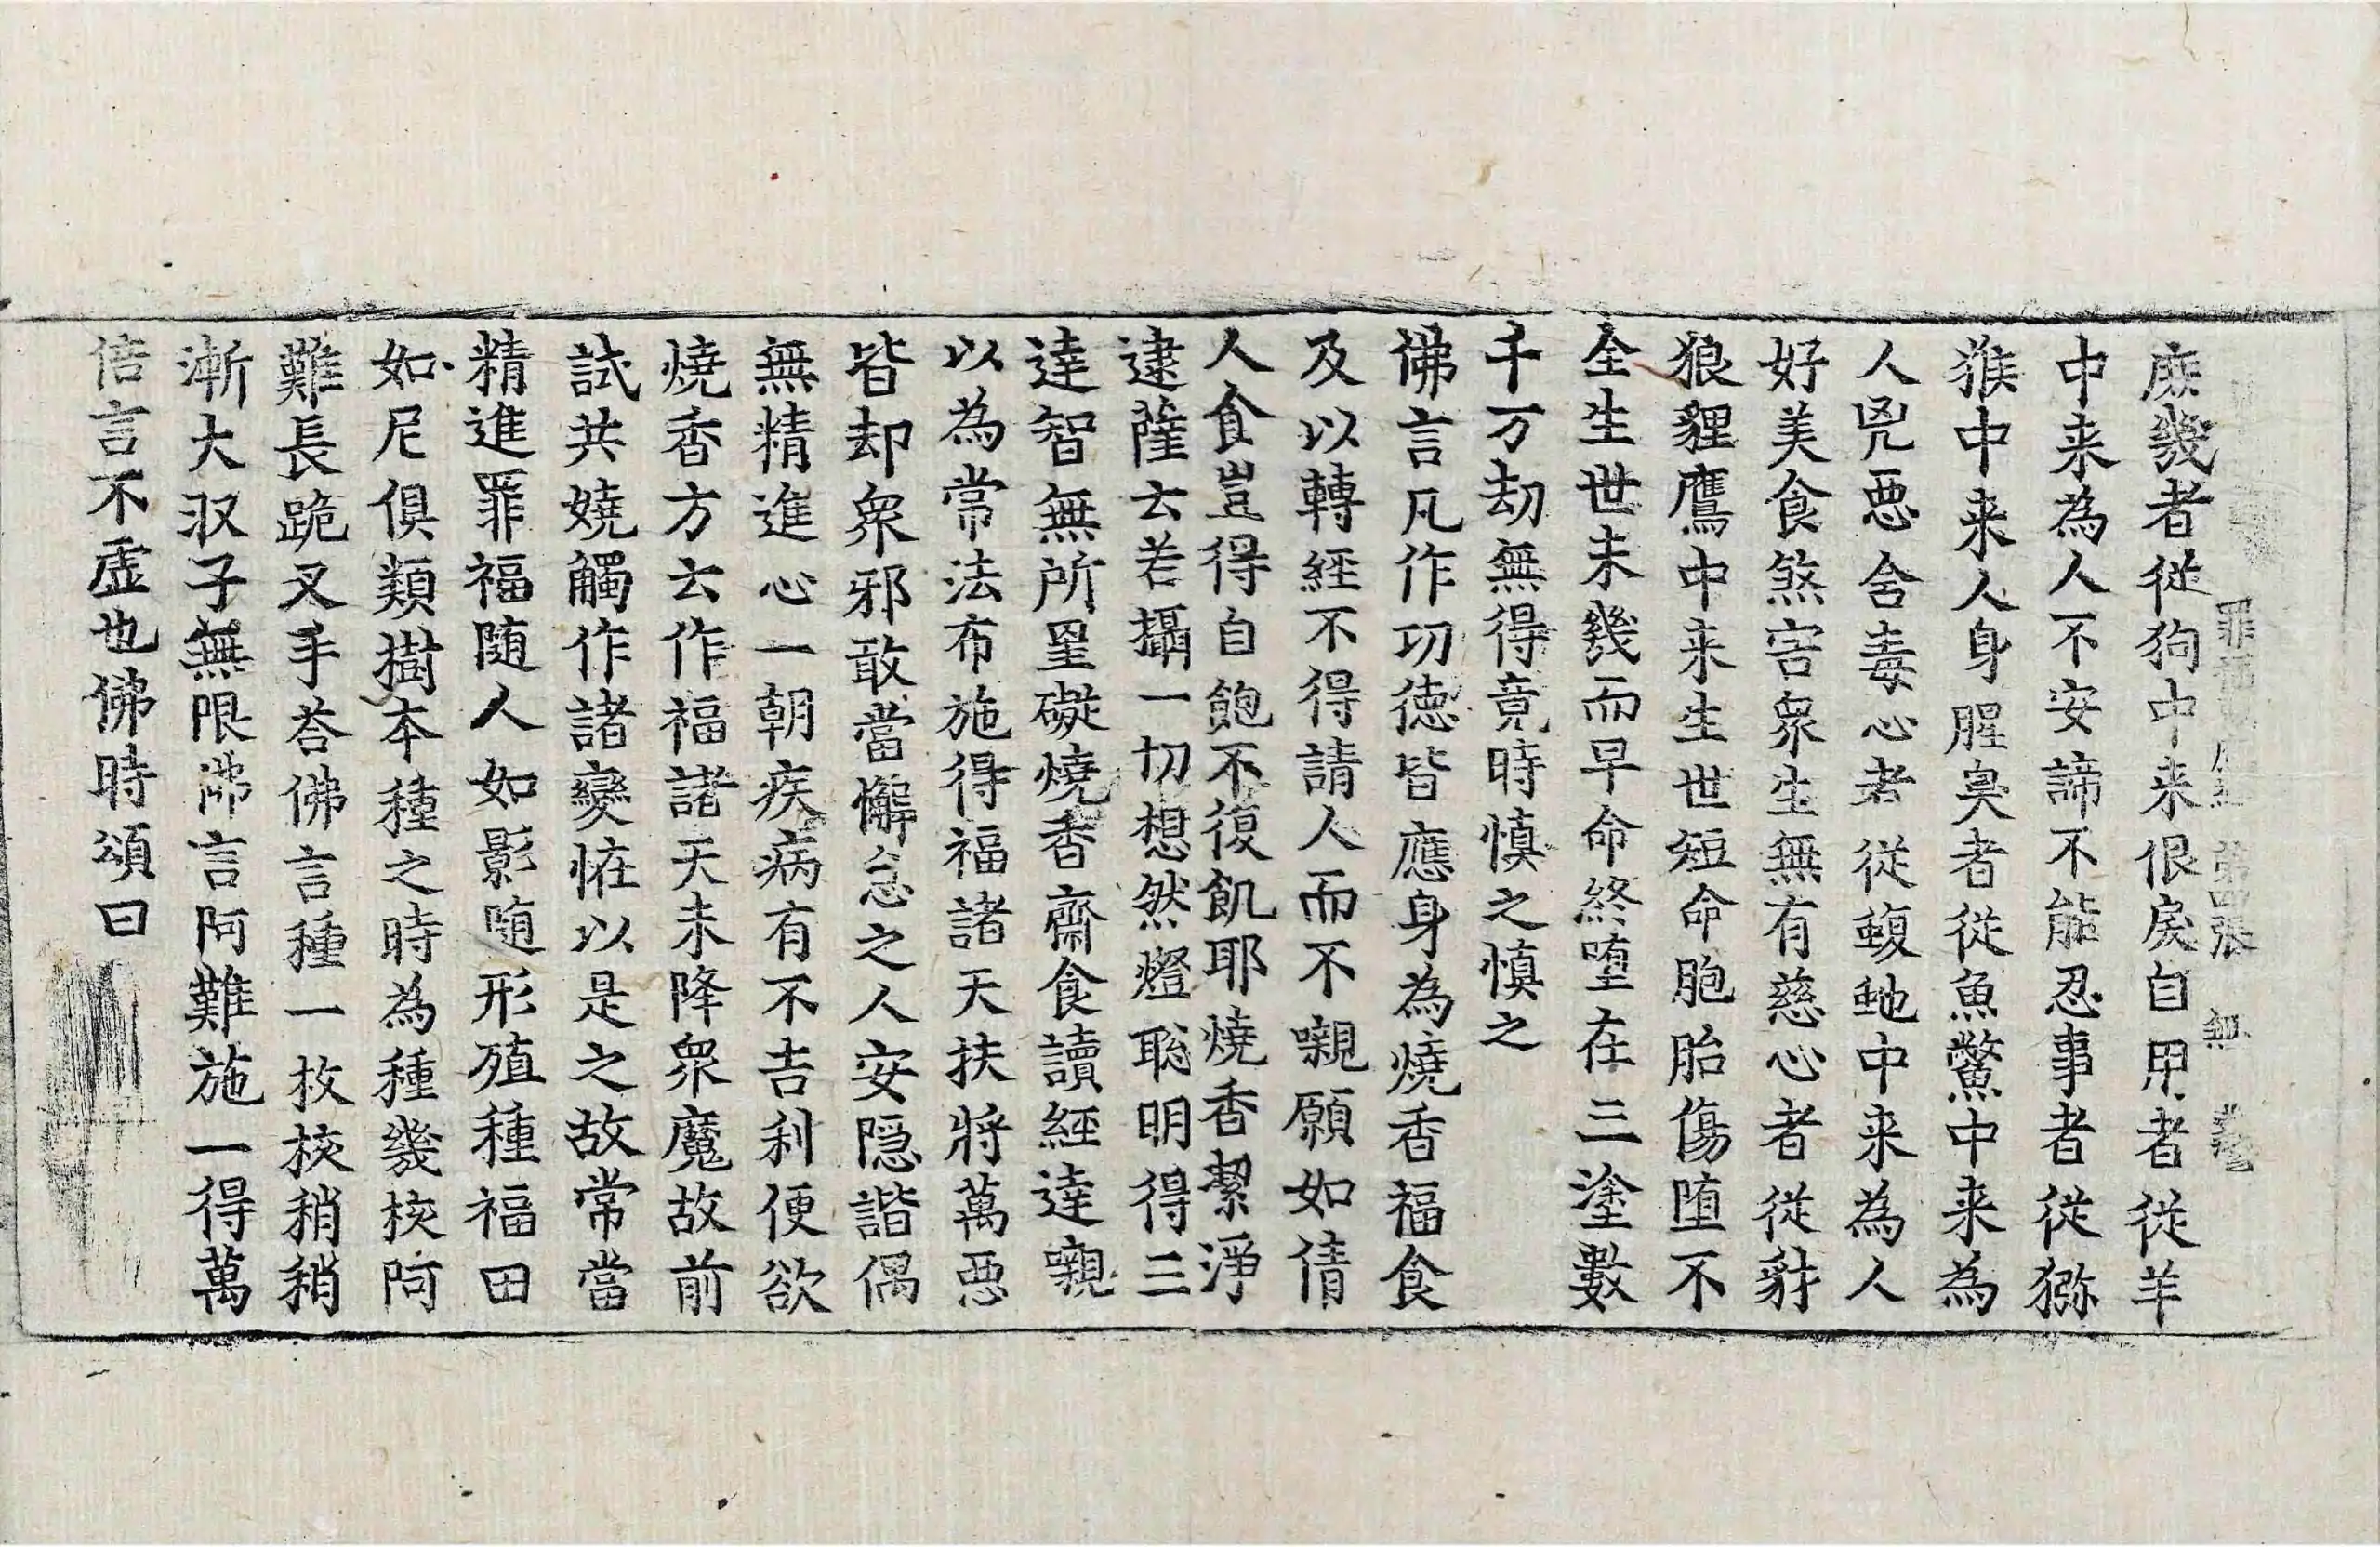 罪福 第四張 無
庻幾者從狗中来佷戾自用者從羊
中来為人不安諦不能忍事者從獼
猴中来人身腥臭者從魚鱉中来為
人兇惡含毒心者從蝮虵中来為人
好美食煞害衆生無有慈心者從豺
狼貍鷹中来生世短命胞胎傷墮不
全生世未幾而早命終墮在三塗數
千万劫無得竟時慎之慎之
佛言凡作功徳皆應身為燒香福食
及以轉經不得請人而不嚫願如倩
人食豈得自飽不復飢耶燒香潔淨
逮薩云若攝一切想然燈聡明得三
達智無所罣礙燒香齋食讀經達嚫
以為常法布施得福諸天扶將萬惡
皆却衆邪敢當懈怠之人安隠諧偶
無精進心一朝疾病有不吉利便欲
燒香方云作福諸天未降衆魔故前
試共嬈觸作諸變恠以是之故常當
精進罪福随人如影随形殖種福田
如尼俱類樹本種之時為種幾核阿
難長跪叉手荅佛言種一枚核稍稍
漸大収子無限佛言阿難施一得萬
倍言不虛也佛時頌曰